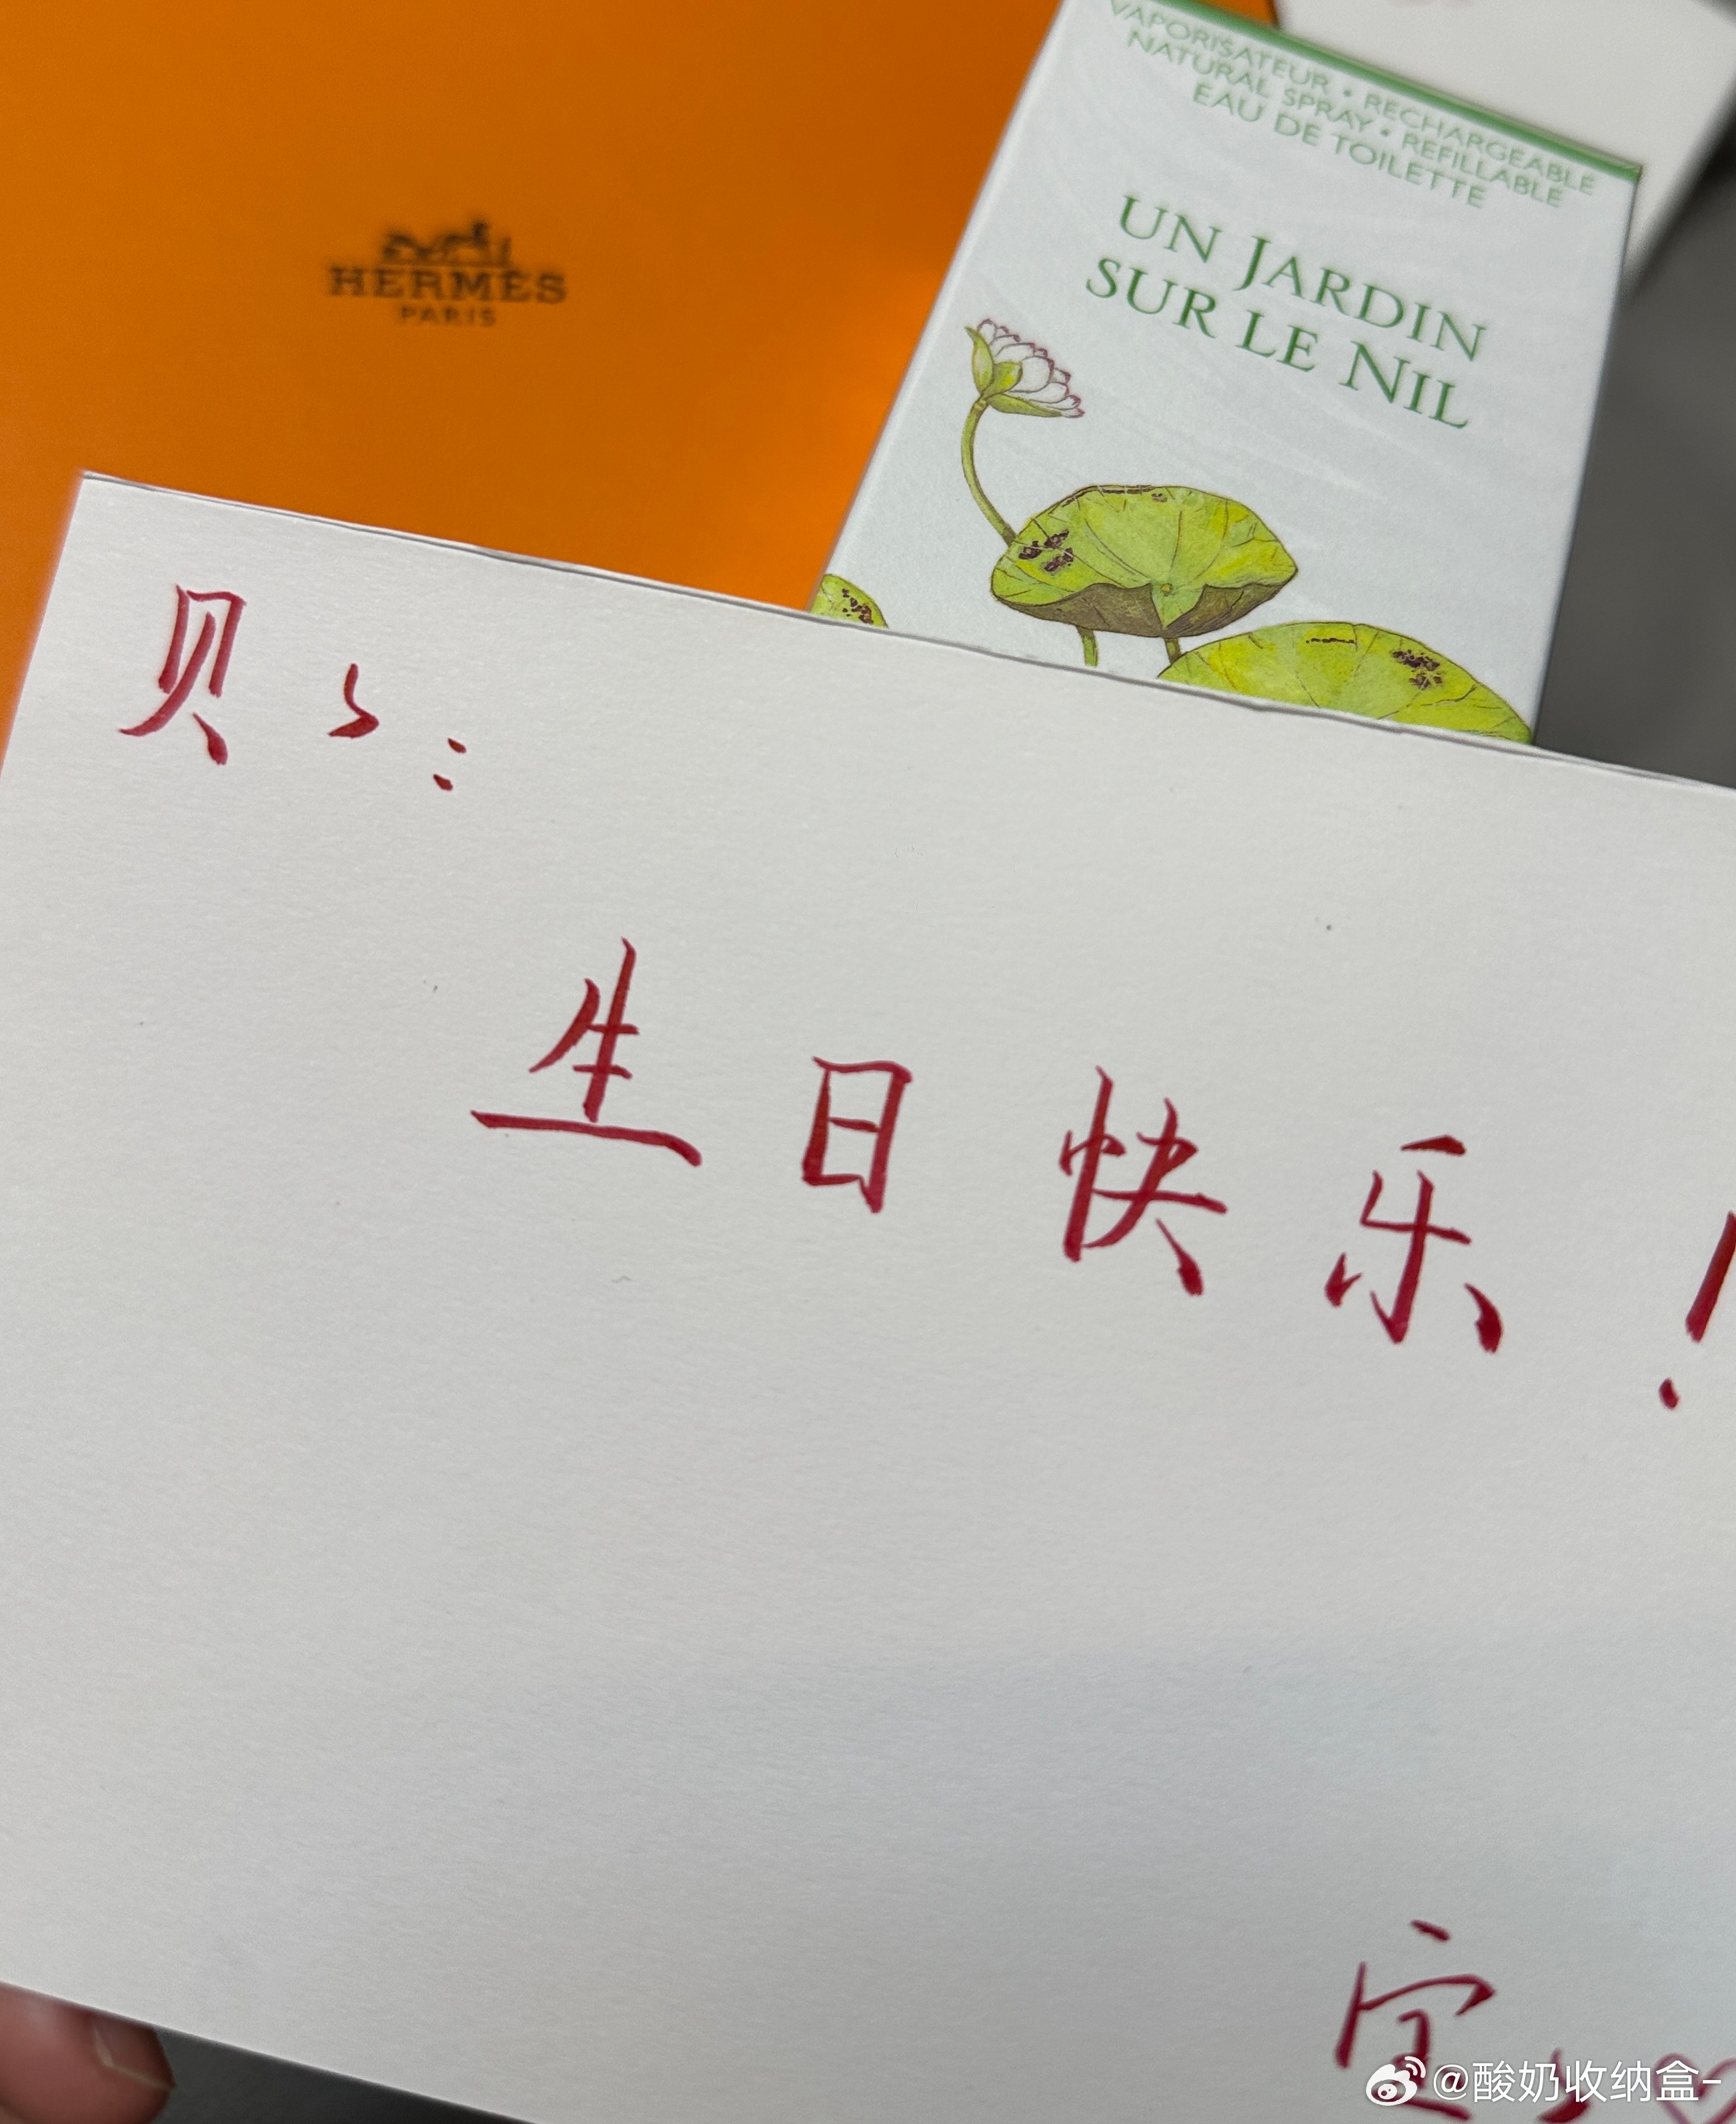 HERMÈS
PARIS
VAPORISATEUR • RECHARGEABLE
NATURAL SPRAY • REFILLABLE
EAU DE TOILETTE
UN JARDIN
SUR LE NIL
贝々：
生日快乐！
宜
@酸奶收纳盒-